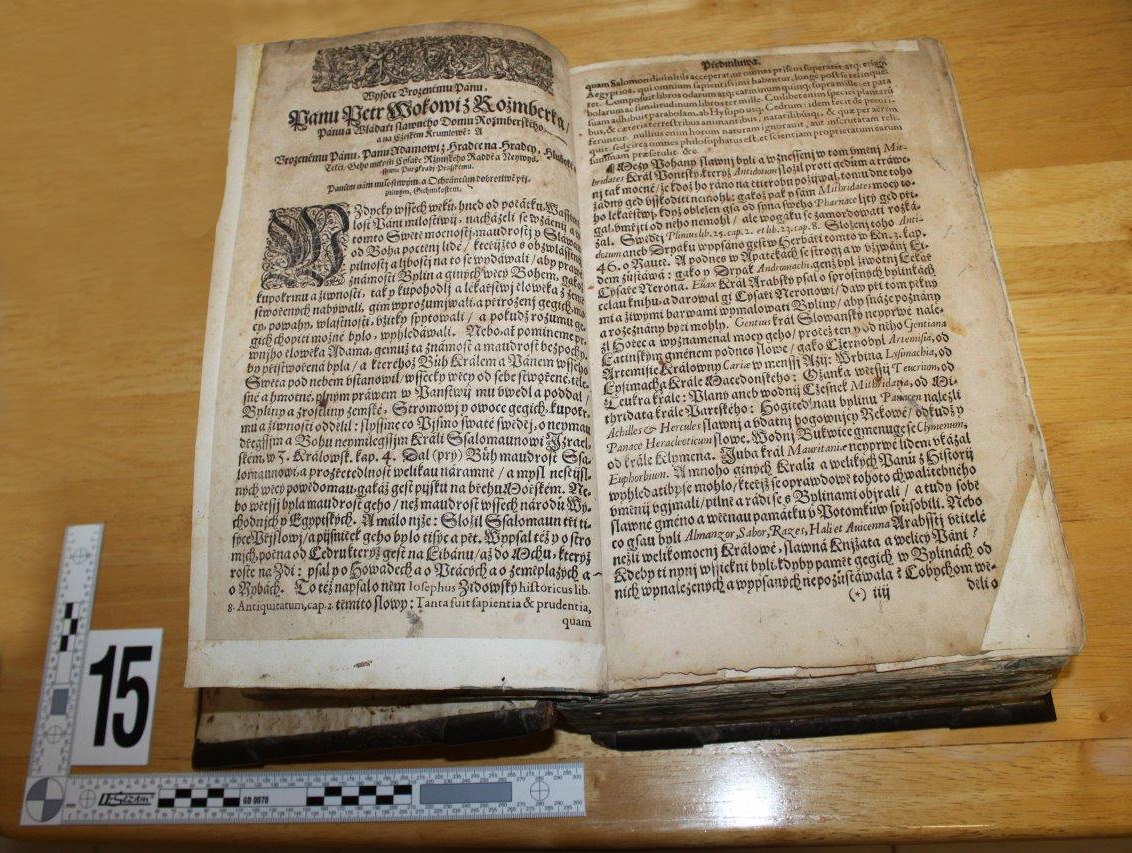 Wysoce Vrozenému Pánu,
Panu Petr Wokowi z Rožmberka /
Pánu a Wladaři slawného Domu Rožmberského,
a na Cžeském Krumlowě: A
Vrozenému Pánu, Panu Adamowi z Hradce na Hradcy,
Telči / Geho milosti Cýsaře Ržimského Raddě a Neywyš-
ssýmu Purgkrabí Pražskému.
Pánům nám milostiwým, a Ochráncům dobrotiwě při-
znitým, Gichmilostem.
WZdycky wssech wěků, hned od počátku,
losti Páni milostiwij, nacházeli se wzácnij a
tomto Swětě mocnostj, maudrostj y Sláwau
od Boha poctěnj lidé / kteřížto s obzwlásstnj
pilnostj a ljbostj na to se wydáwali / aby prawé
známosti Bylin a giných wěcý Bohem, gakož
kupokrmu a žiwnosti, tak y kupohodlj a lékařstwj člowěka z země
stwořených nabýwali, gim wyrozumjwali, a přirozenj gegich, mo-
cy, powahy, wlastnosti, vžitky spytowali / a pokudž rozumu ge-
gich chopiti možné bylo, wyhledáwali. Nebo ať pomineme pr-
wnjho člowěka Adama, gemuž ta známost a maudrost bezpochy-
by přistwořená byla / a kteréhož Bůh Králem a Pánem wsseho
Swěta pod nebem vstanowil / wssecky wěcy od sebe stwořené, těle-
sné a hmotné, plným práwem w Panstwij mu vwedl a poddal /
Byliny a zrostliny zemské, Stromowj y owoce gegich, kupokr-
mu a žiwnosti oddělil: slyssjme co Pjsmo swaté swědčj, o neymau-
dřegssjm a Bohu neymilegssjm Králi Ssalomaunowi Jzrael-
ském, w 3. Králowsk. kap. 4. Dal (prý) Bůh maudrost Ssa-
lomaunowi, a prozřetedlnost welikau náramně / a mysl nesčjsl-
ných wěcý powědomau, gakáž gest pjsku na břehu Mořském. Ne-
bo wětssj byla maudrost geho / než maudrost wssech národů Wý-
chodnjch y Egyptských. A málo njže: Složil Ssalomaun tři ti-
sýce Přjslowj / a pjsniček geho bylo tisýc a pět. Wypsal též y o stro-
mjch, počna od Cedru kterýž gest na Libánu / až do Mchu, kterýž
roste na Zdi: psal y o Howadech a o Ptácých a o zeměplazých a
o Rybách. To též napsal o něm Iosephus Židowský historicus lib.
8. Antiquitatum, cap. 2. těmito slowy: Tanta fuit sapientia & prudentia,
quam
Předmluwa.
quam Salomon diuinitus acceperat, ut omnes priscos superaret, atq; etiam
Aegyptios, qui omnium sapientissimi habentur, longe post se relinque-
ret. Composuit libros odarum atq; carminum quinq; supra mille: et para-
bolarum ac similitudinum libros ter mille. Cuilibet enim speciei plantarū
suam adhibuit parabolam, ab Hysopo usq; Cedrum: idem fecit de pecori-
bus, & cæteris terrestribus animantibus, natatilibusq;, & quæ per aera
feruntur. nullius enim horum naturam ignorauit, aut inscrutatam reli-
quit, sed de ea omnes philosophatus est, et scientiam proprietatum earum
summam præsetulit. &c.
Mezy Pohany slawnj byli a wznessenj w tom vměnj Mit-
hridates Král Pontský, kterýž Antidotum složil proti gedům a tráwe-
nj tak mocné / že kdož ho ráno na tsstitrobu požjwal, tomu dne toho
žádný ged vsskoditi nemohl: gakož pak y sám Mithridates mocý to-
ho lékařstwj, když obležen gsa od syna swého Pharnace ligý ged při-
gal, vmřjti od něho nemohl / ale wogáku se zamordowati rozká-
zal. Swědčj Plinius lib. 25. cap. 2. et lib. 23. cap. 8. Složenj toho Anti-
dotum aneb Dryáku wypsáno gest w Herbáři tomto w Kn. 3. kap.
46. o Rautě. A podnes w Apatekách se strogj a w vžjwánj Li-
dem zůstáwá: gako y Dryák Andromachi, genž byl žiwotnj Lékař
Cýsaře Neróna. Euax Král Arabský psal o sprostných bylinkách
celau knihu, a darowal gi Cýsaři Neronowi / daw pět tom pěkný
mi a žiwými barwami wymalowati Byliny / aby snáze poznány
a rozeznány býti mohly. Gentius král Slowanský neyprwé nale-
zl Hořec a wyznamenal mocy geho / protož ten y od něho Gentiana
Latinským gménem podnes slowe / gako Cžernobýl Artemisia, od
Artemisie Králowny Cariæ w menssj Azij: Wrbina Lysimachia, od
Lyzimacha Krále Macedonského: Ožanka wětssj Teucrium, od
Teukra krále: Planý aneb wodnj Cžesnek Mithridatia, od Mi-
thridata krále Partského: Hogitedlnau bylinu Panacen nalezli
Achilles & Hercules slawnj a vdatnj bogownjcy Ržekowé / odkudž y
Panace Heracleoticum slowe. Wodnj Bukwice gmenuge se Clymenum,
od krále Klymena. Juba král Mauritaniæ neyprwé lidem vkázal
Euphorbium. A mnoho giných Králů a welikých Pánů z Historij
wyhledati by se mohlo / kteřjž se oprawdowě tohoto chwalitebného
vměnj vgjmali / pilně a rádi se s Bylinami objrali / a tudy sobě
slawné gméno a wěčnau památku v Potomků spůsobili. Nebo
co gsau byli Almanzor, Sabor, Razes, Hali et Auicenna Arabsstj včitelé
nežli welikomocnj Králowé, slawná Knjžata a welicý Páni?
Kdeby ti nynj wssickni byli, kdyby paměť gegich w Bylinách od
nich wynalezených a wypsaných nepozůstáwala? Cobychom wě-
děli o
(*) iiij
15
GD 0070